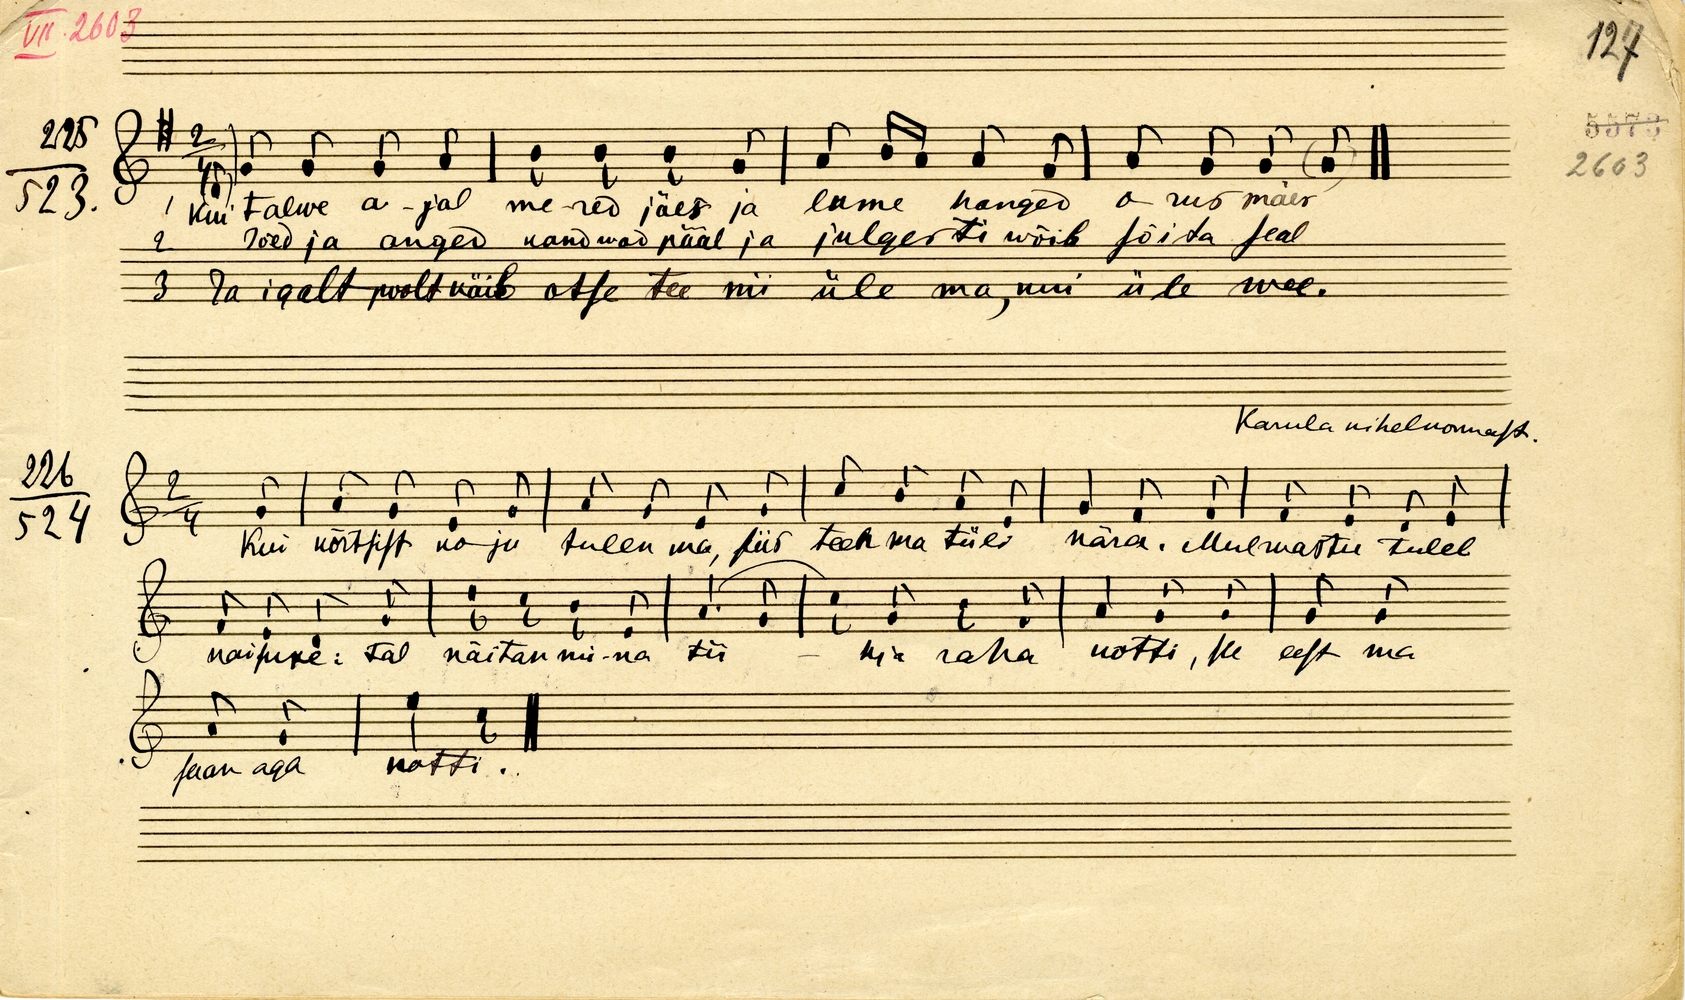 VII. 2603
127
225
523.
5573
2603
2/4
1 Kui talwe a-jal me-red jäes ja lume hanged o-rus mäes
2 Jõed ja anged kandwad pääl ja julgesti wõib sõita seal
3 Ja igalt poolt näib otse tee nii üle ma, nii üle wee.
Karula kihelkonnast.
226
524
2/4
Kui kõrtsist ko-ju tulen ma, siis teeh ma tüli kära. Mul wastu tuleb
naisuke: tal näitan mi-na tü - hja raha kotti, se eest ma
saan aga kotti.